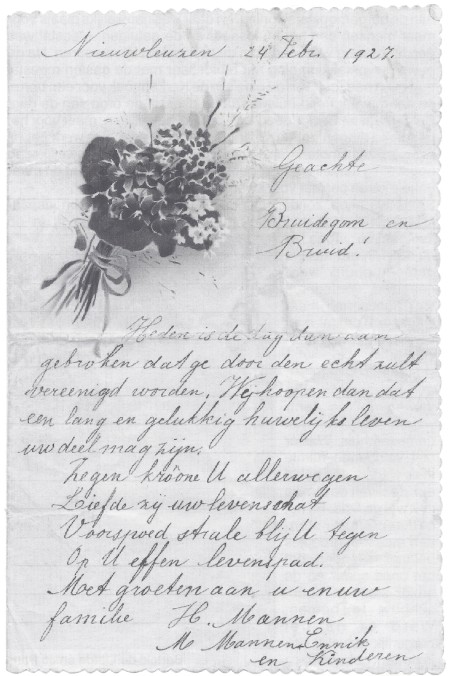 Nieuwleuzen 24 Febr. 1927.
Geachte
Bruidegom en
Bruid!
Heden is de dag dan aan
gebroken dat ge door den echt zult
vereenigd worden. Wij hoopen dan dat
een lang en gelukkig huwelijksleven
uw deel mag zijn.
Zegen kröone U allerwegen
Liefde zij uw levenschat
Voorspoed strale blij U tegen
Op U effen levenspad.
Met groeten aan u en uw
familie H. Mannen
M Mannen-Ennik
en Kinderen